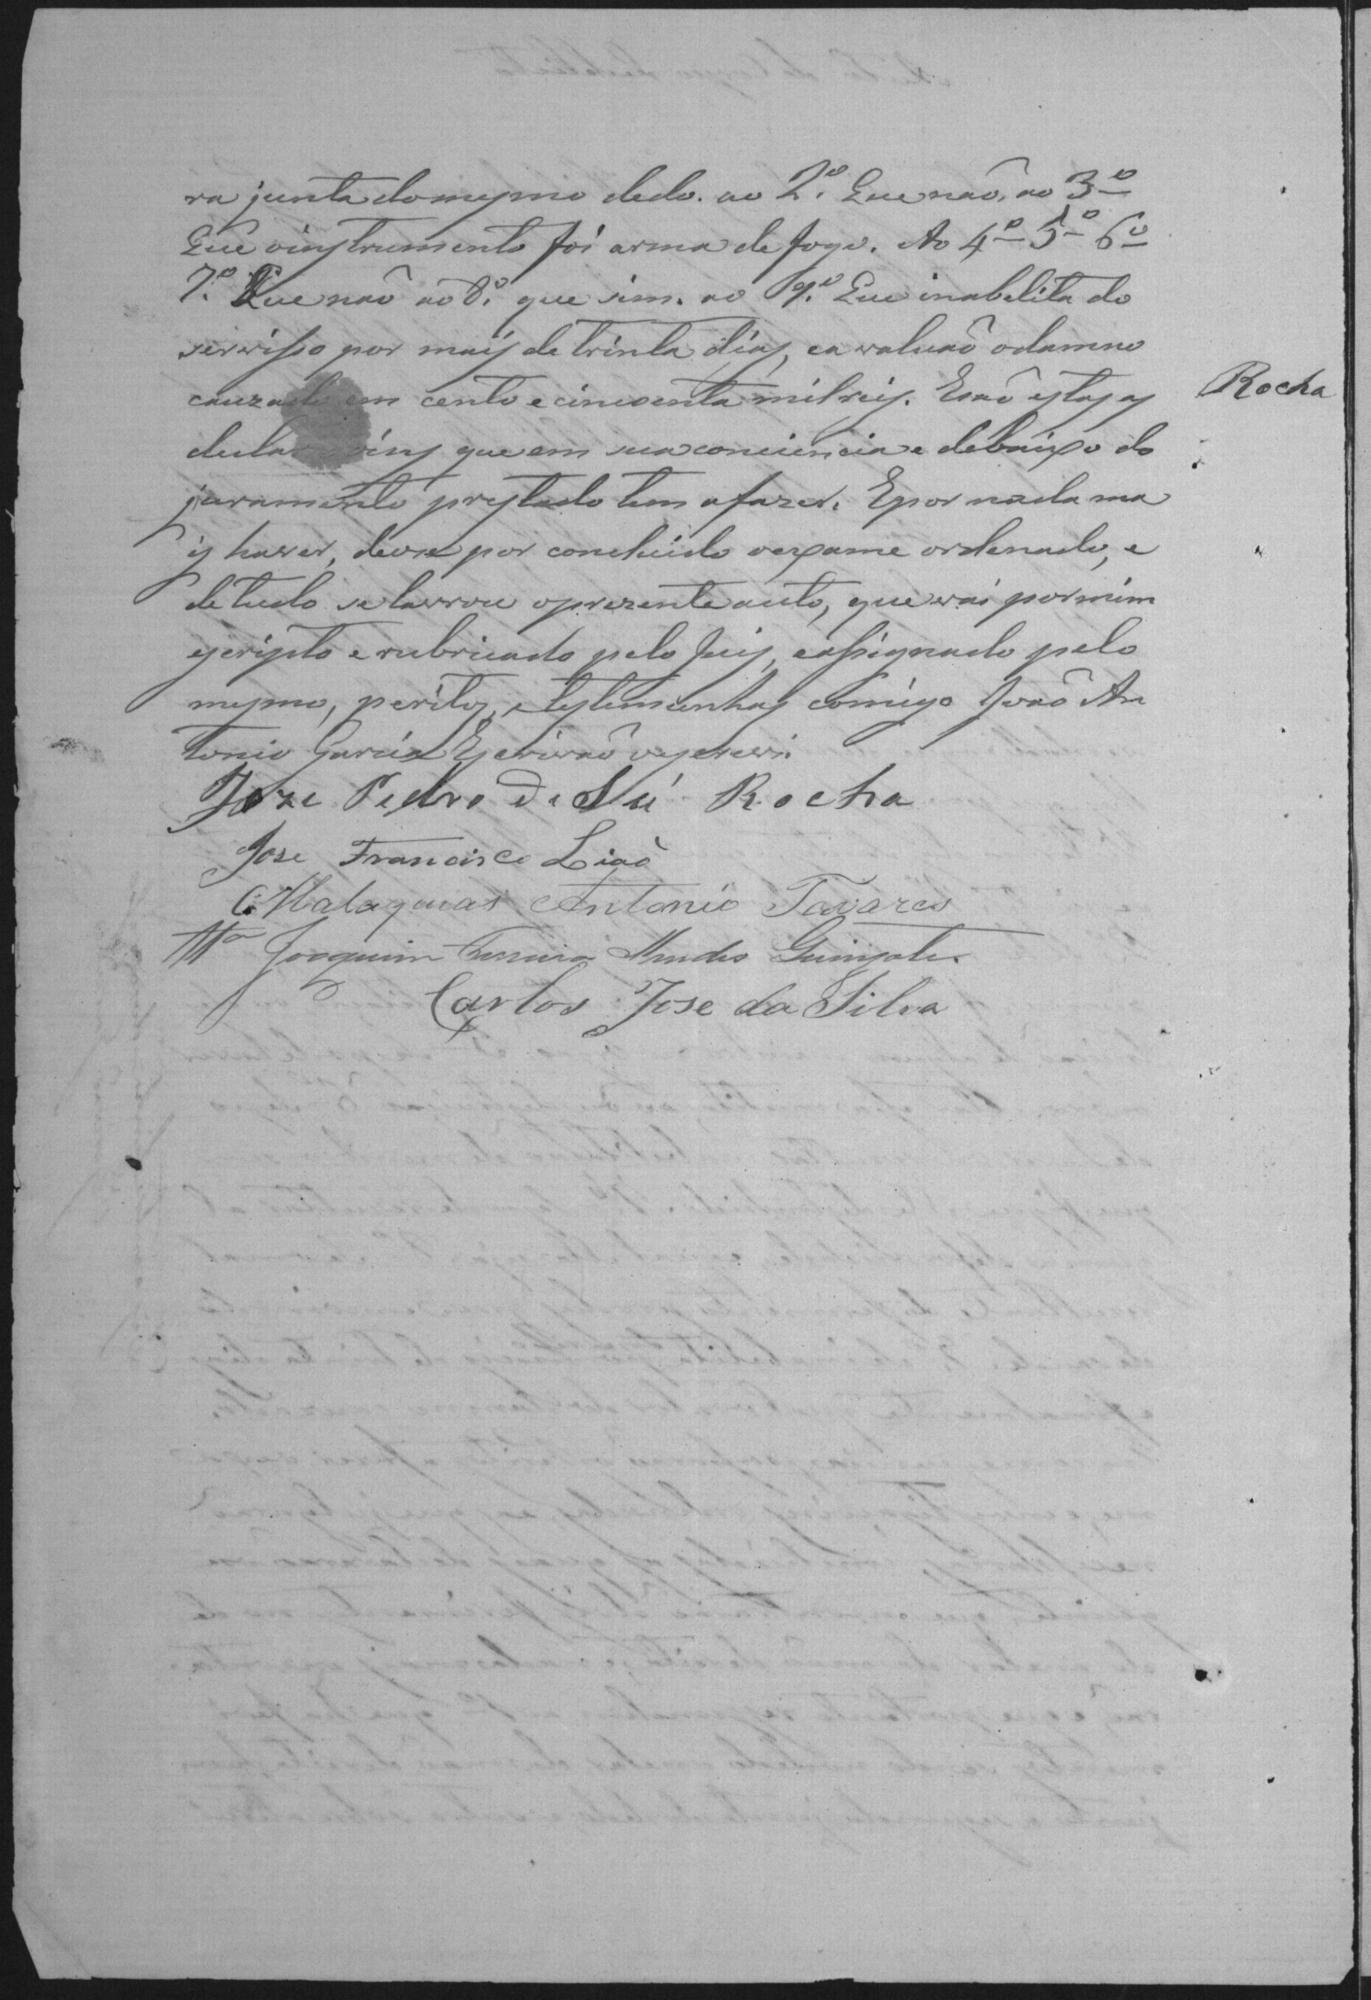 ra junta do mesmo dedo. ao 2º. Que não, ao 3º
Que oinstrumento foi arma de fogo. Ao 4º 5º 6º
7º. Que não ao 8º. que sim. ao 9º. Que inabelita do
servisso por mais de trinta dias, ea valuaõ odamno
cauzado em cento e cincoenta milreis. Esaõ estas as
declaraçoins que em sua conciencia e debaixo do
juramento prestado tem afazer. Epor nada ma
is haver, deuse por concluido oexame ordenado, e
de tudo se lavrou oprezente auto, que vai por mim
escripto e rubricado pelo Juis, eassignado pelo
mesmo, peritos, e testemunhas comigo João An
tonio Garcia Escrivaõ oescrevi.
Joze Pedro de Sá Rocha
Jose Francisco Liaõ
Malaquias Antonio Tavares
Joaquim Ferreira Mendes
Carlos Jose da Silva
Rocha